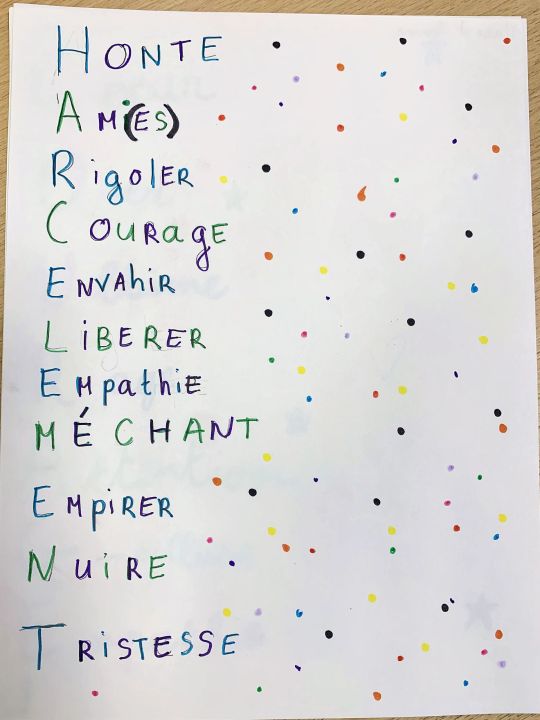 HONTE
AMi(ES)
RigolER
COURagE
ENVAhiR
LiBERER
EMpathiE
MÉCHANT
EMpiRER
NuiRE
TRiSTESSE